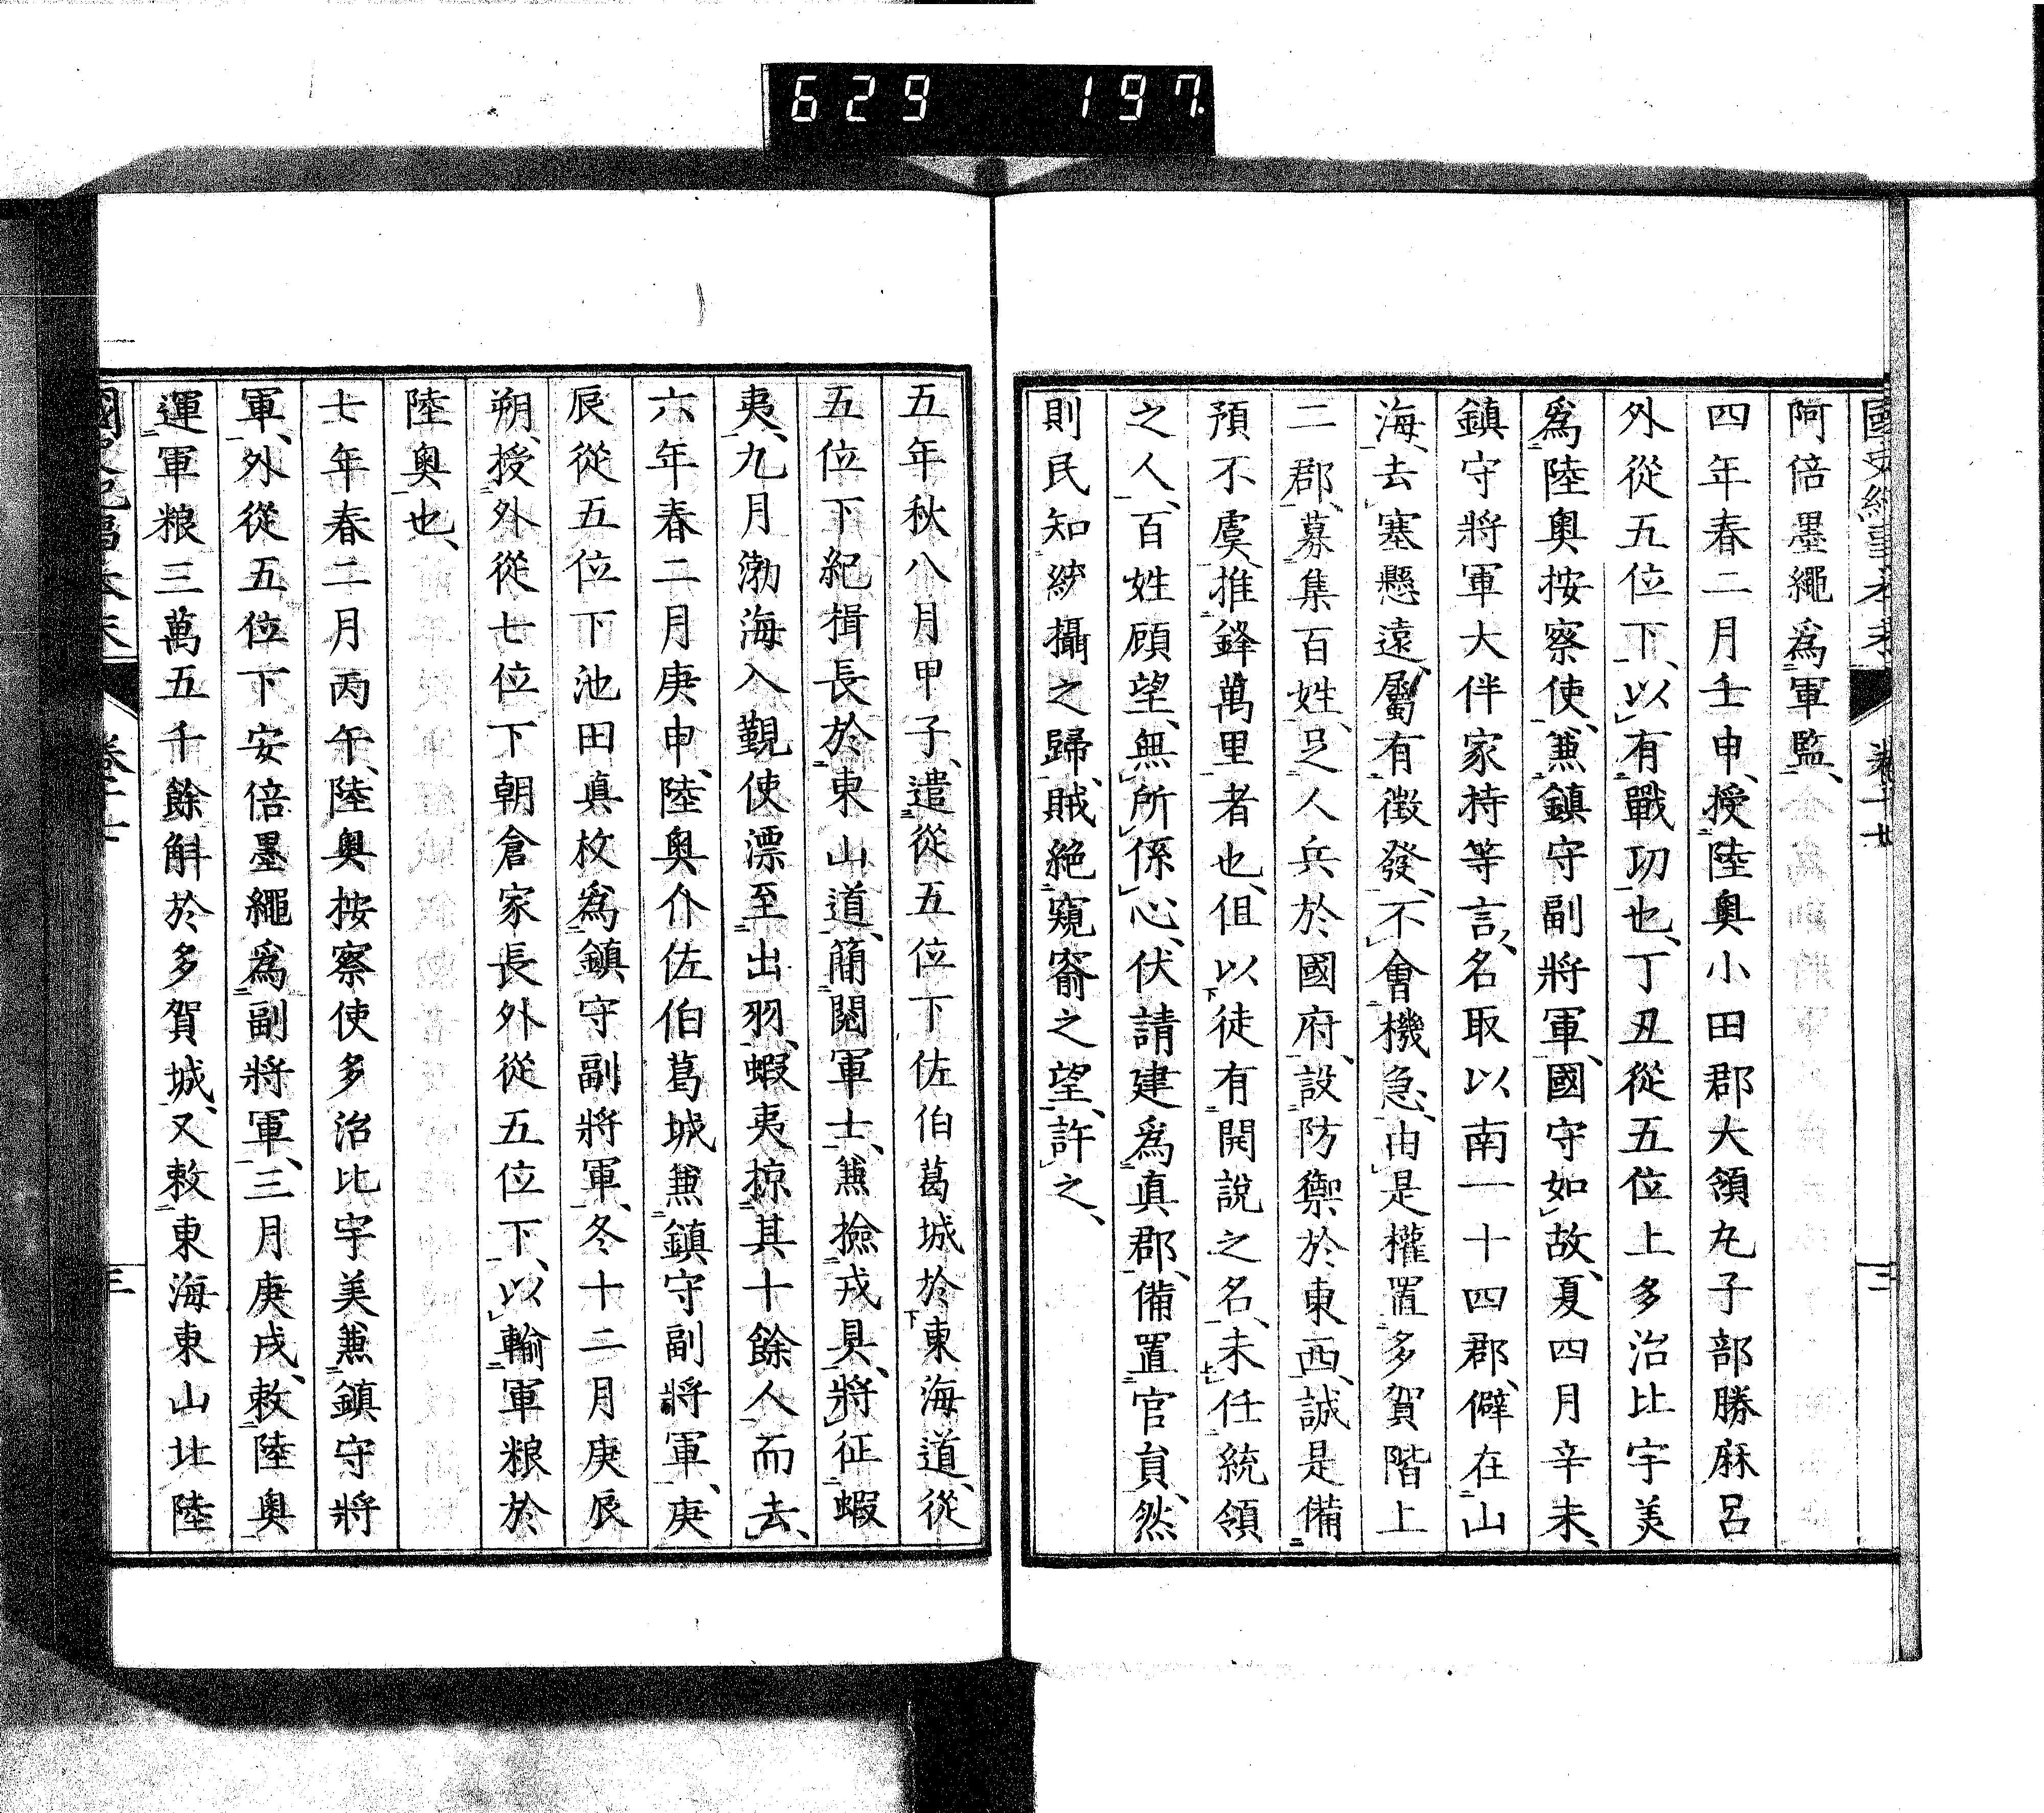 629 197
阿倍墨繩爲軍監、
四年春二月壬申、授陸奧小田郡大領丸子部勝麻呂
外從五位下、以有戰功也、丁丑從五位上多治比宇美
爲陸奧按察使、兼鎮守副將軍、國守如故、夏四月辛未、
鎮守將軍大伴家持等言、名取以南一十四郡、僻在山
海、去塞懸遠、屬有徵發、不會機急、由是權置多賀階上
二郡、募集百姓、足人兵於國府、設防禦於東西、誠是備
預不虞、推鋒萬里者也、但以徒有開說之名、未任統領
之人、百姓顧望、無所係心、伏請建爲真郡、備置官員、然
則民知統攝之歸、賊絕窺窬之望、許之、
五年秋八月甲子、遣從五位下佐伯葛城於東海道、從
五位下紀揖長於東山道、簡閱軍士、兼撿戎具、將征蝦
夷、九月渤海入覲使漂至出羽、蝦夷掠其十餘人而去、
六年春二月庚申、陸奧介佐伯葛城兼鎮守副將軍、庚
辰從五位下池田真枚爲鎮守副將軍、冬十二月庚辰
朔、授外從七位下朝倉家長外從五位下、以輸軍粮於
陸奧也、
七年春二月丙午、陸奧按察使多治比宇美兼鎮守將
軍、外從五位下安倍墨繩爲副將軍、三月庚戌、敕陸奧
運軍粮三萬五千餘斛於多賀城、又敕東海東山北陸
三